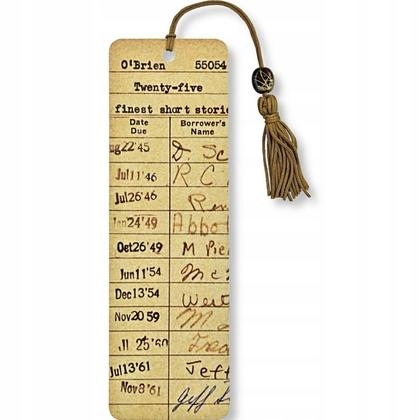 O'Brien 55054
Twenty-five
finest short stories
Date Due Borrower's Name
ug22'45 D. Sc
Jul11'46 R C
Jul26'46
Jan24'49 Abbot
Oct26'49 M Pie
Jun11'54 McN
Dec13'54 West
Nov20 59 M
Jl 25'60 Fred
Jul13'61 Jeff
Nov8'61 Jeff